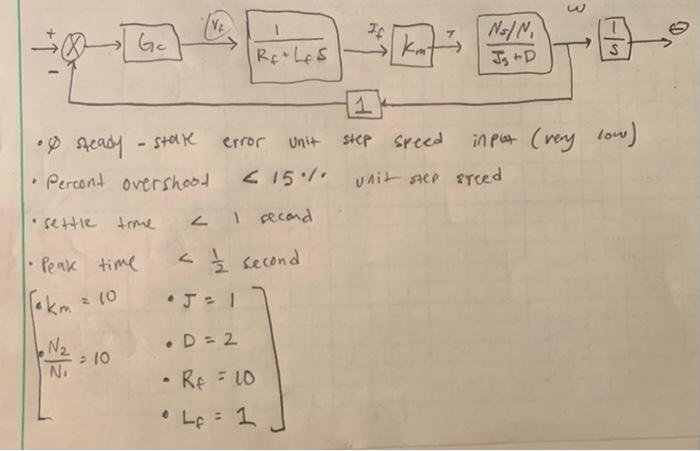 + - Gc Vf 1 / Rf + Lf S If Km τ N2/N1 / Js + D ω 1 / S θ
1
• Ø steady-state error unit step speed input (very low)
• Percent overshoot < 15% unit step speed
• settle time < 1 second
• Peak time < 1/2 second
• Km = 10 • J = 1
• N2/N1 = 10 • D = 2
• Rf = 10
• Lf = 1